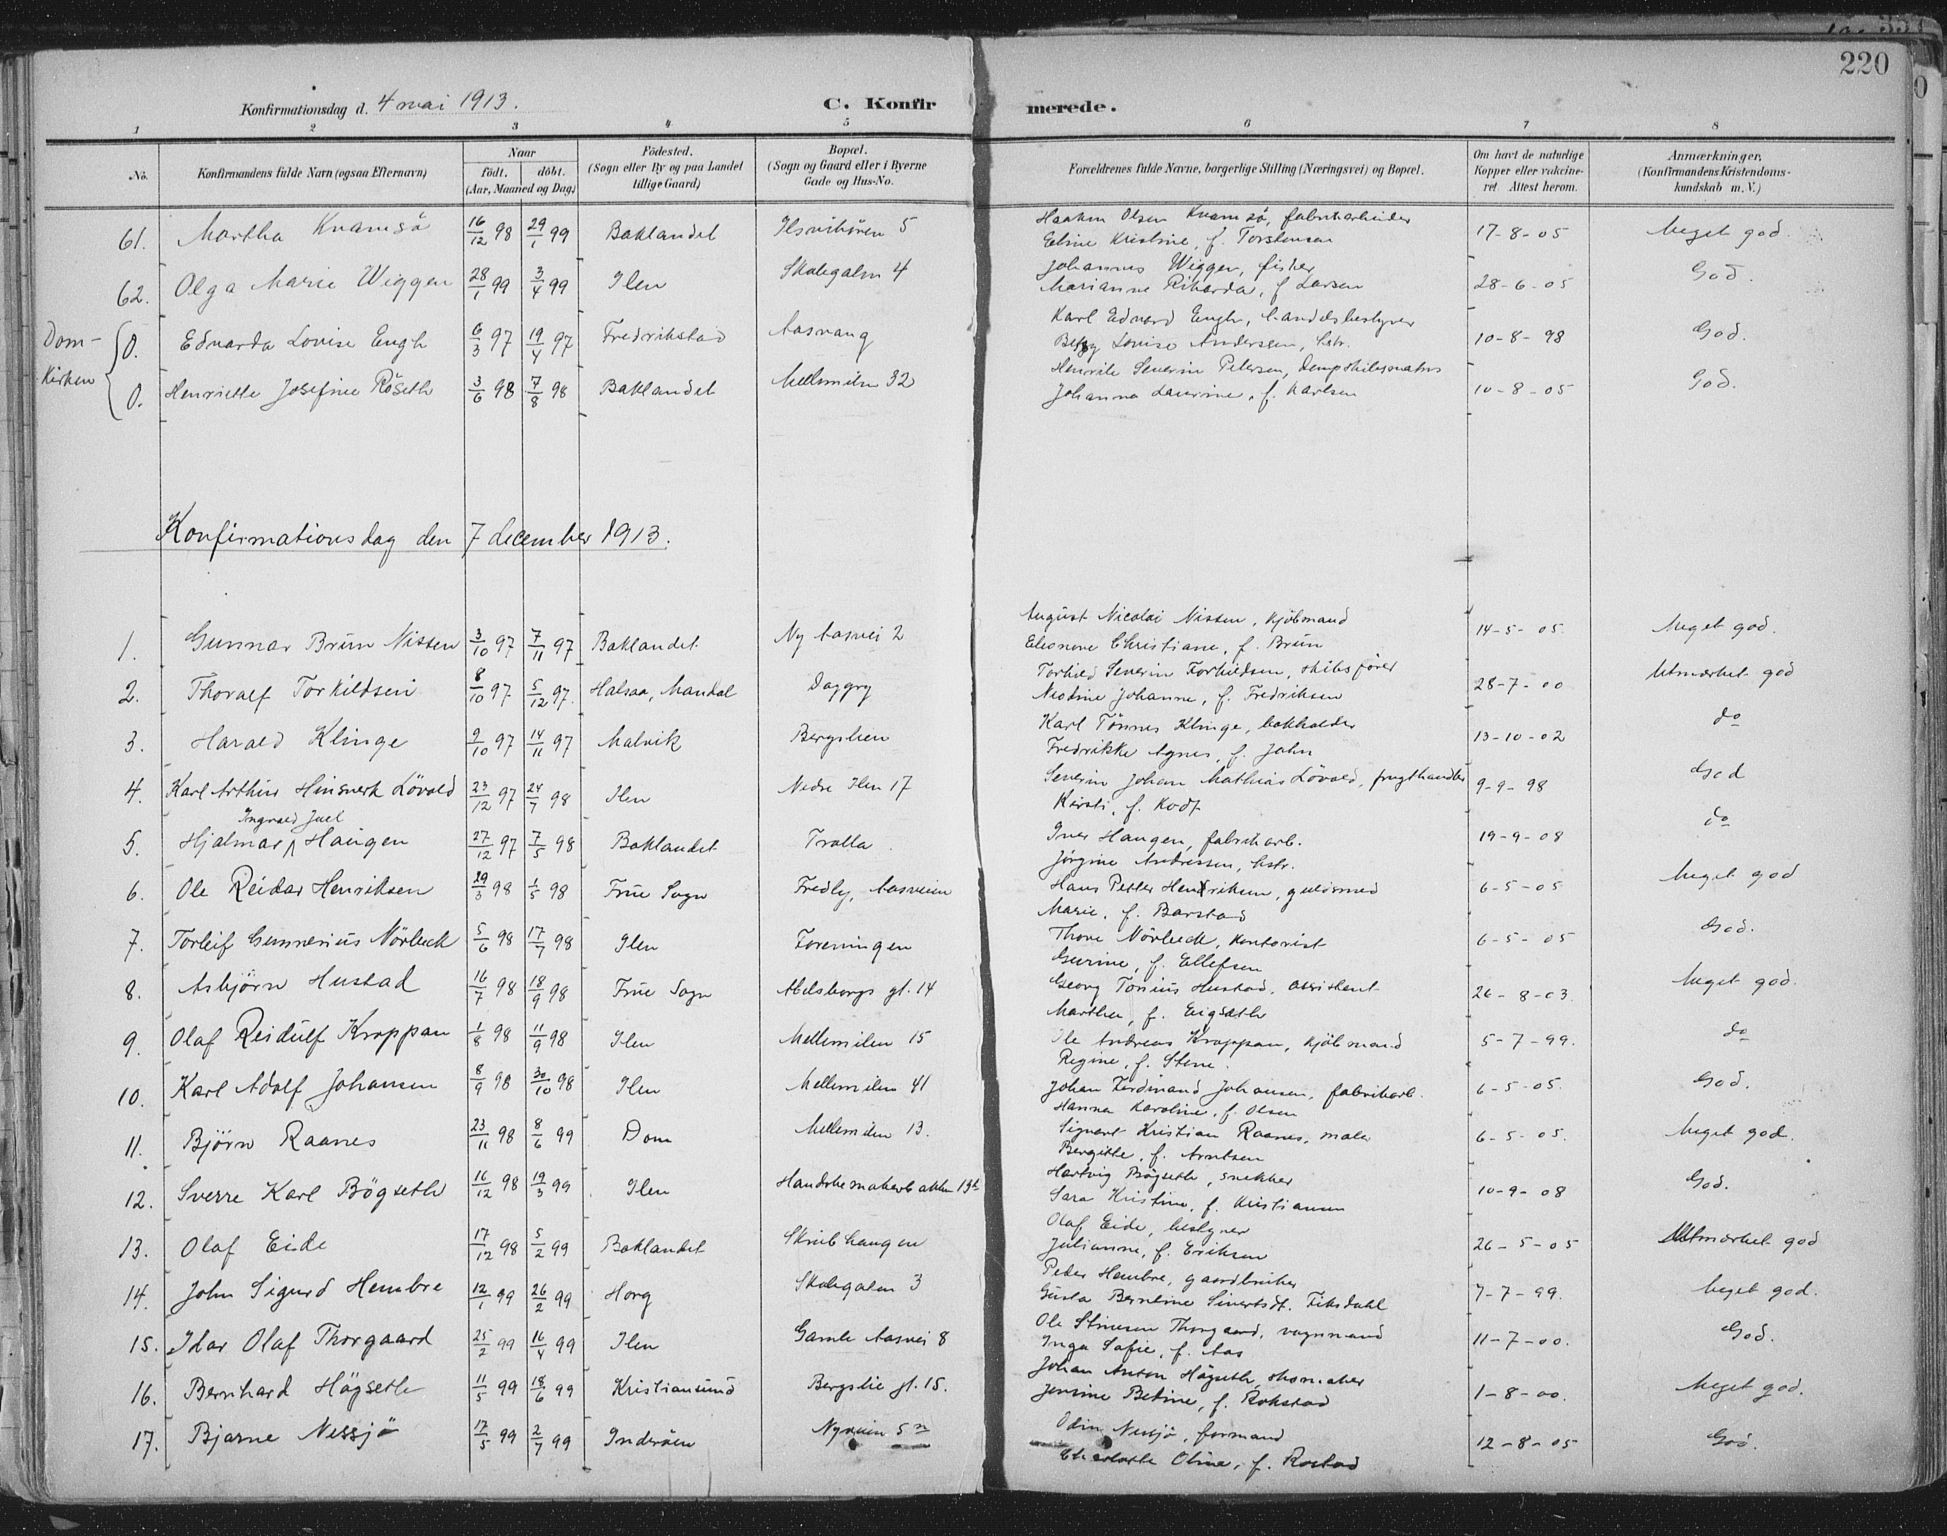 220
Konfirmationsdag d. 4 mai 1913. C. Konfirmerede.
1 2 3 4 5 6 7 8
No. Konfirmandens fulde Navn (ogsaa Efternavn) Naar født. døbt. (Aar, Maaned og Dag) Fødested. (Sogn eller By og paa Landet tillige Gaard) Bopæl. (Sogn og Gaard eller i Byerne Gade og Hus-No. Forældrenes fulde Navne, borgerlige Stilling (Næringsvei) og Bopæl. Om havt de naturlige Kopper eller vaccineret. Attest herom. Anmærkninger. (Konfirmandens Kristendomskundskab m. V.)
61. Martha Kvamsö 16/12 98 29/1 99 Baklandet Ilsvikören 5 Haakon Olsen Kvamsö, fabrikarbeider 17-8-05 Meget god.
Eline Kristine, f. Torstensen
62. Olga Marie Wiggen 28/1 99 3/4 99 Ilen Skolegaten 4 Johannes Wiggen, fisker 28-6-05 God.
Marianne Rikarda, f. Larsen
Domkirken
0. Edvarda Lovise Engh 6/3 97 19/4 97 Fredrikstad Aasvang Karl Edvard Engh, handelsbestyrer 10-8-98 God.
Lovise Andersen, hstr.
0. Henriette Josefine Röseth 3/6 98 7/8 98 Baklandet Mellemilen 32 Henrik Severin Petersen, 10-8-05 God.
Johanna Laurine, f. Karlsen
Konfirmationsdag den 7 december 1913.
1. Gunnar Brun Nissen 3/10 97 7/11 97 Baklandet Ny Aasvei 2 August Nicolai Nissen, kjöbmand 14-5-05. Meget god.
Eleonore Christiane, f. Brun
2. Thoralf Torkildsen 8/10 97 5/12 97. Halsaa, Mandal Daggry Torkild Severin Torkildsen, skibsförer 28-7-00 Utmærket god
Johanne, f. Fredriksen
3. Harald Klinge 9/10 97 14/11 97 Malvik Bergslien Karl Tönnes Klinge, bokholder 13-10-02 do
Fredrikke Agnes, f. Jahn
4. Karl Arthur Hinsverk Lövold 23/12 97 24/7 98 Ilen Nedre Ilen 17 Severin Johan Mathias Lövold, frugthandler 9-9-98 God
Kirsti, f. Kodt
Ingvald Juel
5. Hjalmar Haugen 27/12 97 7/5 98 Baklandet Trolla. Iver Haugen, fabrikarb. 19-9-08 do
Jörgine Andressen, hstr.
6. Ole Reidar Henriksen 29/3 98 1/5 98 Frue Sogn Fredly, Aasveien Hans Petter Henriksen, guldsmed 6-5-05 Meget god
Marie, f. Barstad
7. Torleif Gunnerius Nörbeck 5/6 98 17/7 98 Ilen Foreningen Thore Nörbeck, kontorist 6-5-05 God.
Gurine, f. Ellefsen
8. Asbjörn Hustad 16/7 98 18/9 98 Frue Sogn Abelsborgs gt. 14 Georg Tonius Hustad, assistent 26-8-03. Meget god.
Marthea, f.
9. Olaf Reidulf Kroppan 1/8 98 11/9 98 Ilen Mellemilen 15 Ole Andreas Kroppan, kjöbmand 5-7-99. do
Regine, f. Stene.
10. Karl Adolf Johansen 8/9 98 30/10 98 Ilen Mellemilen 41 Johan Ferdinand Johansen, fabrikarb. 6-5-05. God.
Hanna Karoline, f. Olsen
11. Björn Raanes 23/11 98 8/6 99 Dom Mellemilen 13. Sigvart Kristian Raanes, maler 6-5-05. Meget god.
Bergitte, f. Arntsen
12. Sverre Karl Bögseth 16/12 98 19/3 99 Ilen Handskemakerbakken 13b Hartvig Bögseth, snekker 10-9-08 God.
Sara Kristine, f. Kristiansen
13. Olaf Eide 17/12 98 5/2 99 Baklandet Skrubhaugen Olaf Eide, bestyrer 26-5-05 Utmærket god
Julianne, f. Eriksen
14. John Sigurd Hembre 12/1 99 26/2 99 Horg Skolegaten 3 Peder Hembre, gaardbruker 7-7-99. Meget god.
Gusta Berntine Sivertsdt. Fiksdahl
15. Idar Olaf Thorgaard 25/2 99 16/4 99 Ilen Gamle Aasvei 8 Ole Thorgaard, vognmand 11-7-00. God.
Inga Sofie, f. Aas
16. Bernhard Högseth 11/5 99 18/6 99 Kristiansund Bergslie gt. 15. Johan Anton Högseth, skomaker 1-8-00. Meget god.
Jensine Betine, f. Rokstad
17. Bjarne Nessjö 17/5 99 2/7 99 Inderöen Nyveien 5 Odin Nessjö, formand 12-8-05 God.
Charlotte Oline, f. Rostad